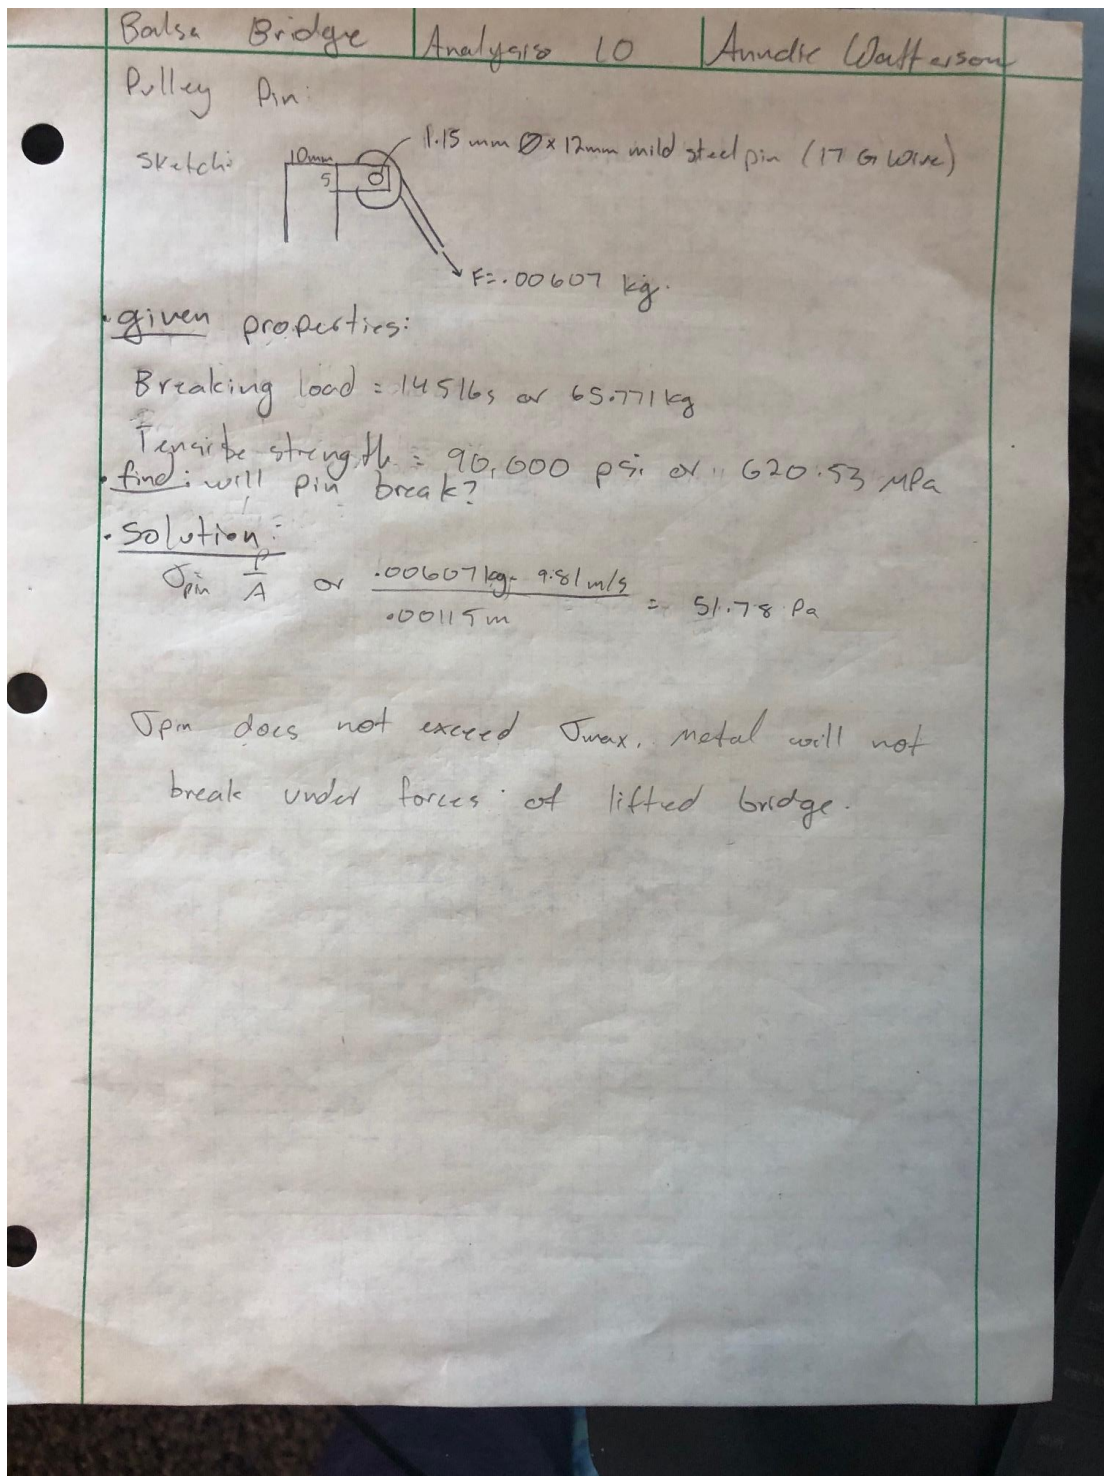 Balsa Bridge Analysis 10 Anndie Watterson
Pulley Pin:
Sketch:
1.15 mm Ø x 12mm mild steel pin (17 G wire)
10mm
5
F=.00607 kg.
• given properties:
Breaking load = 145lbs or 65.771kg
Tensile strength = 90,000 psi or 620.53 MPa
• find: will pin break?
• Solution:
σpin = P/A or .00607kg · 9.81 m/s / .00115m = 51.78 Pa
σpin does not exceed σmax, metal will not
break under forces of lifted bridge.